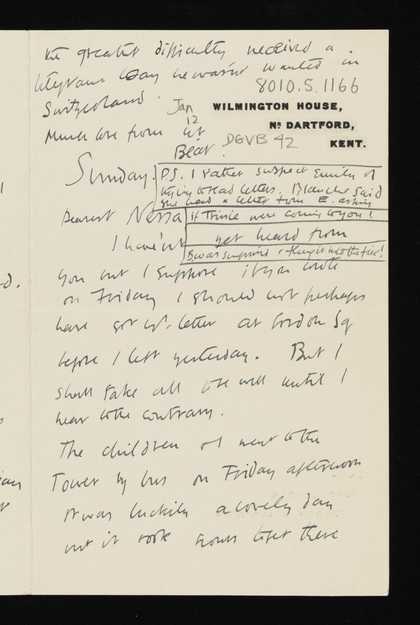 the greatest difficulty received a
telegram to say he wasn't wanted in
Switzerland.
8010.5.1166
Much love from
WILMINGTON HOUSE,
Nr. DARTFORD,
KENT.
Jan
12
DGVB 42
Sunday.
P.S. I rather suspect Emily of
trying to read letters. Blanche said
she had a letter from E. asking
if Thisie were coming to you!
Dearest Nessa
I haven't yet heard from
you but I suppose if you wrote
on Friday I should not perhaps
have got yr. letter at Gordon Sq
before I left yesterday. But I
shall take all to be well until I
hear to the contrary.
The children & I went to the
Tower by bus on Friday afternoon
It was luckily a lovely day
but it took hours to get there